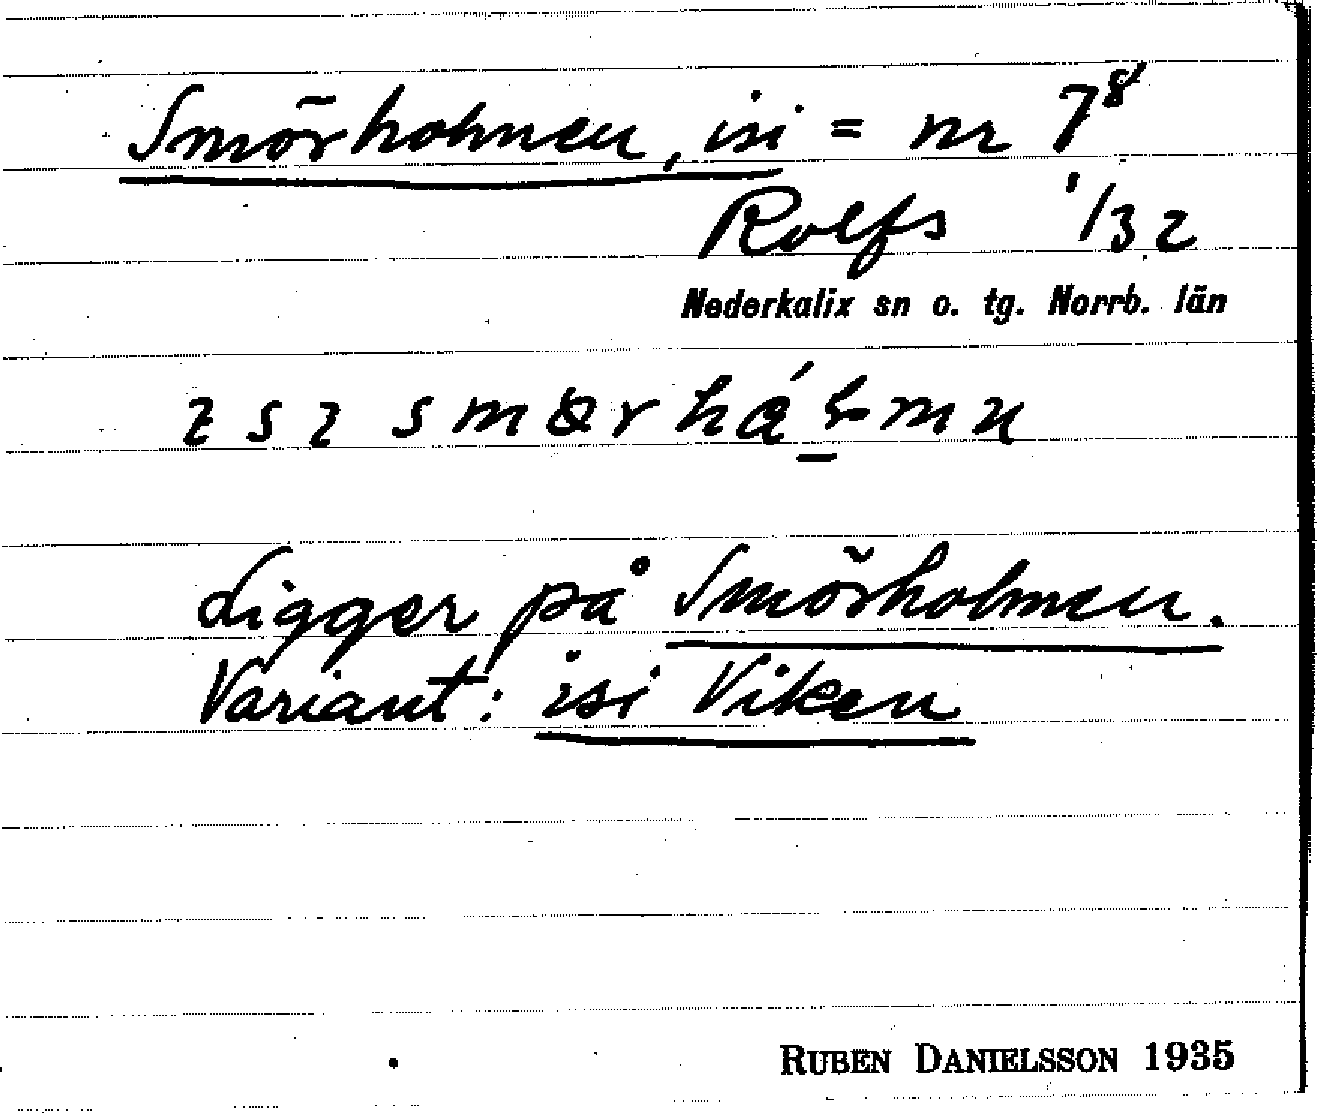 Smörholmen, isi = nr 7⁸
Rolfs 1/32
Nederkalix sn o. tg. Norrb. län
Ligger på Smörholmen.
Variant: isi Viken
RUBEN DANIELSSON 1935